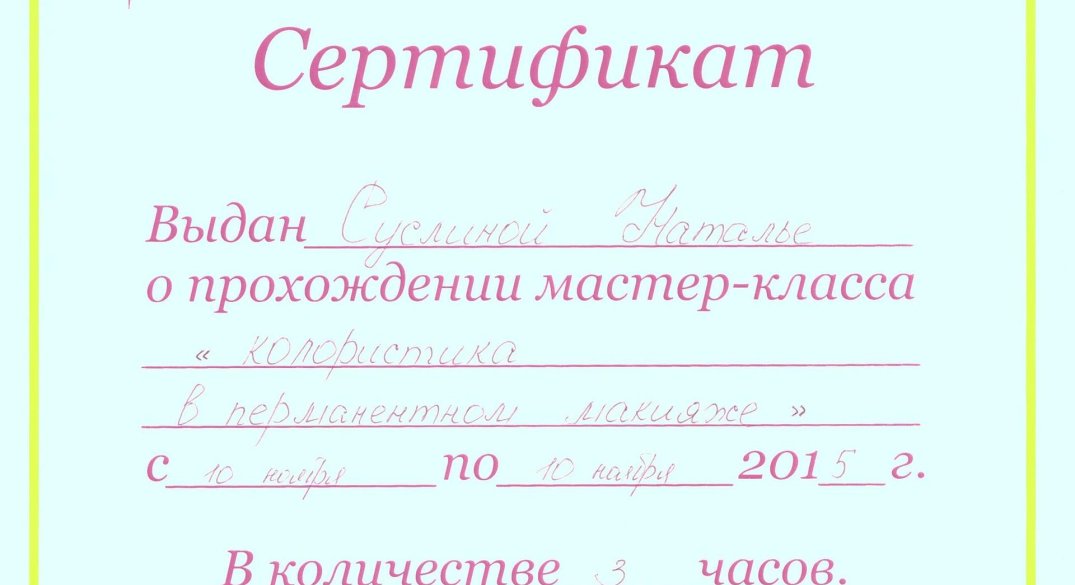 Сертификат
Выдан Суслиной Наталье
о прохождении мастер-класса
« колористика
в перманентном макияже »
с 10 ноября по 10 ноября 2015 г.
В количестве 3 часов.